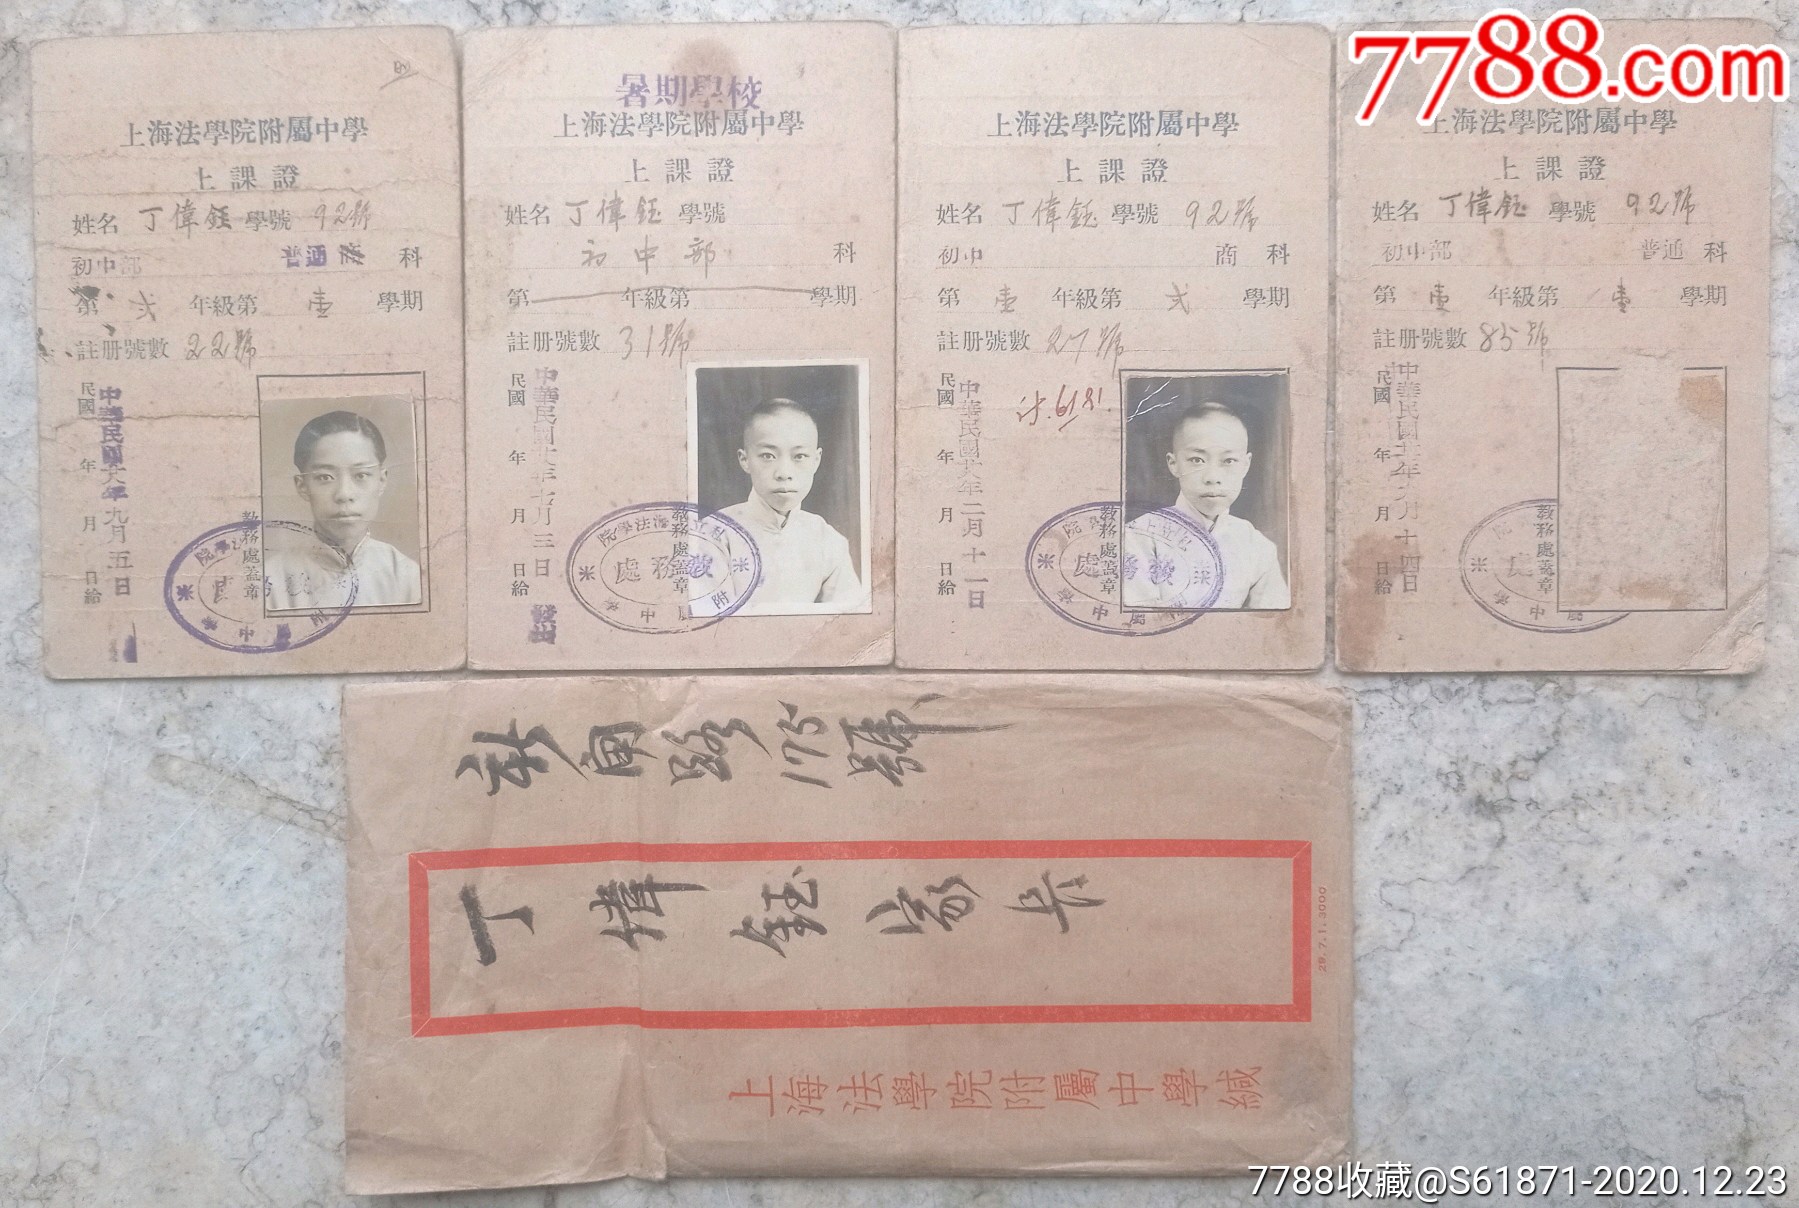 7788.com
上海法學院附屬中學
上課證
姓名 丁偉鈺 學號 92號
初中部 普通 科
第 弍 年級第 壹 學期
註册號數 22號
民國 年 月 日給
九月五日
教務處蓋章
暑期學校
上海法學院附屬中學
上課證
姓名 丁偉鈺 學號
初中部 科
第 年級第 學期
註册號數 31號
民國 年 月 日給
中華民國廿八年七月三日
教務處蓋章
上海法學院附屬中學
上課證
姓名 丁偉鈺 學號 92號
初中 商 科
第 壹 年級第 弍 學期
註册號數 27號
民國 年 月 日給
中華民國廿八年二月十一日
教務處蓋章
上海法學院附屬中學
上課證
姓名 丁偉鈺 學號 92號
初中部 普通 科
第 壹 年級第 壹 學期
註册號數 85號
民國 年 月 日給
教務處蓋章
路175號
丁偉鈺家長
上海法學院附屬中學緘
29.7.1.3000
7788收藏@S61871-2020.12.23